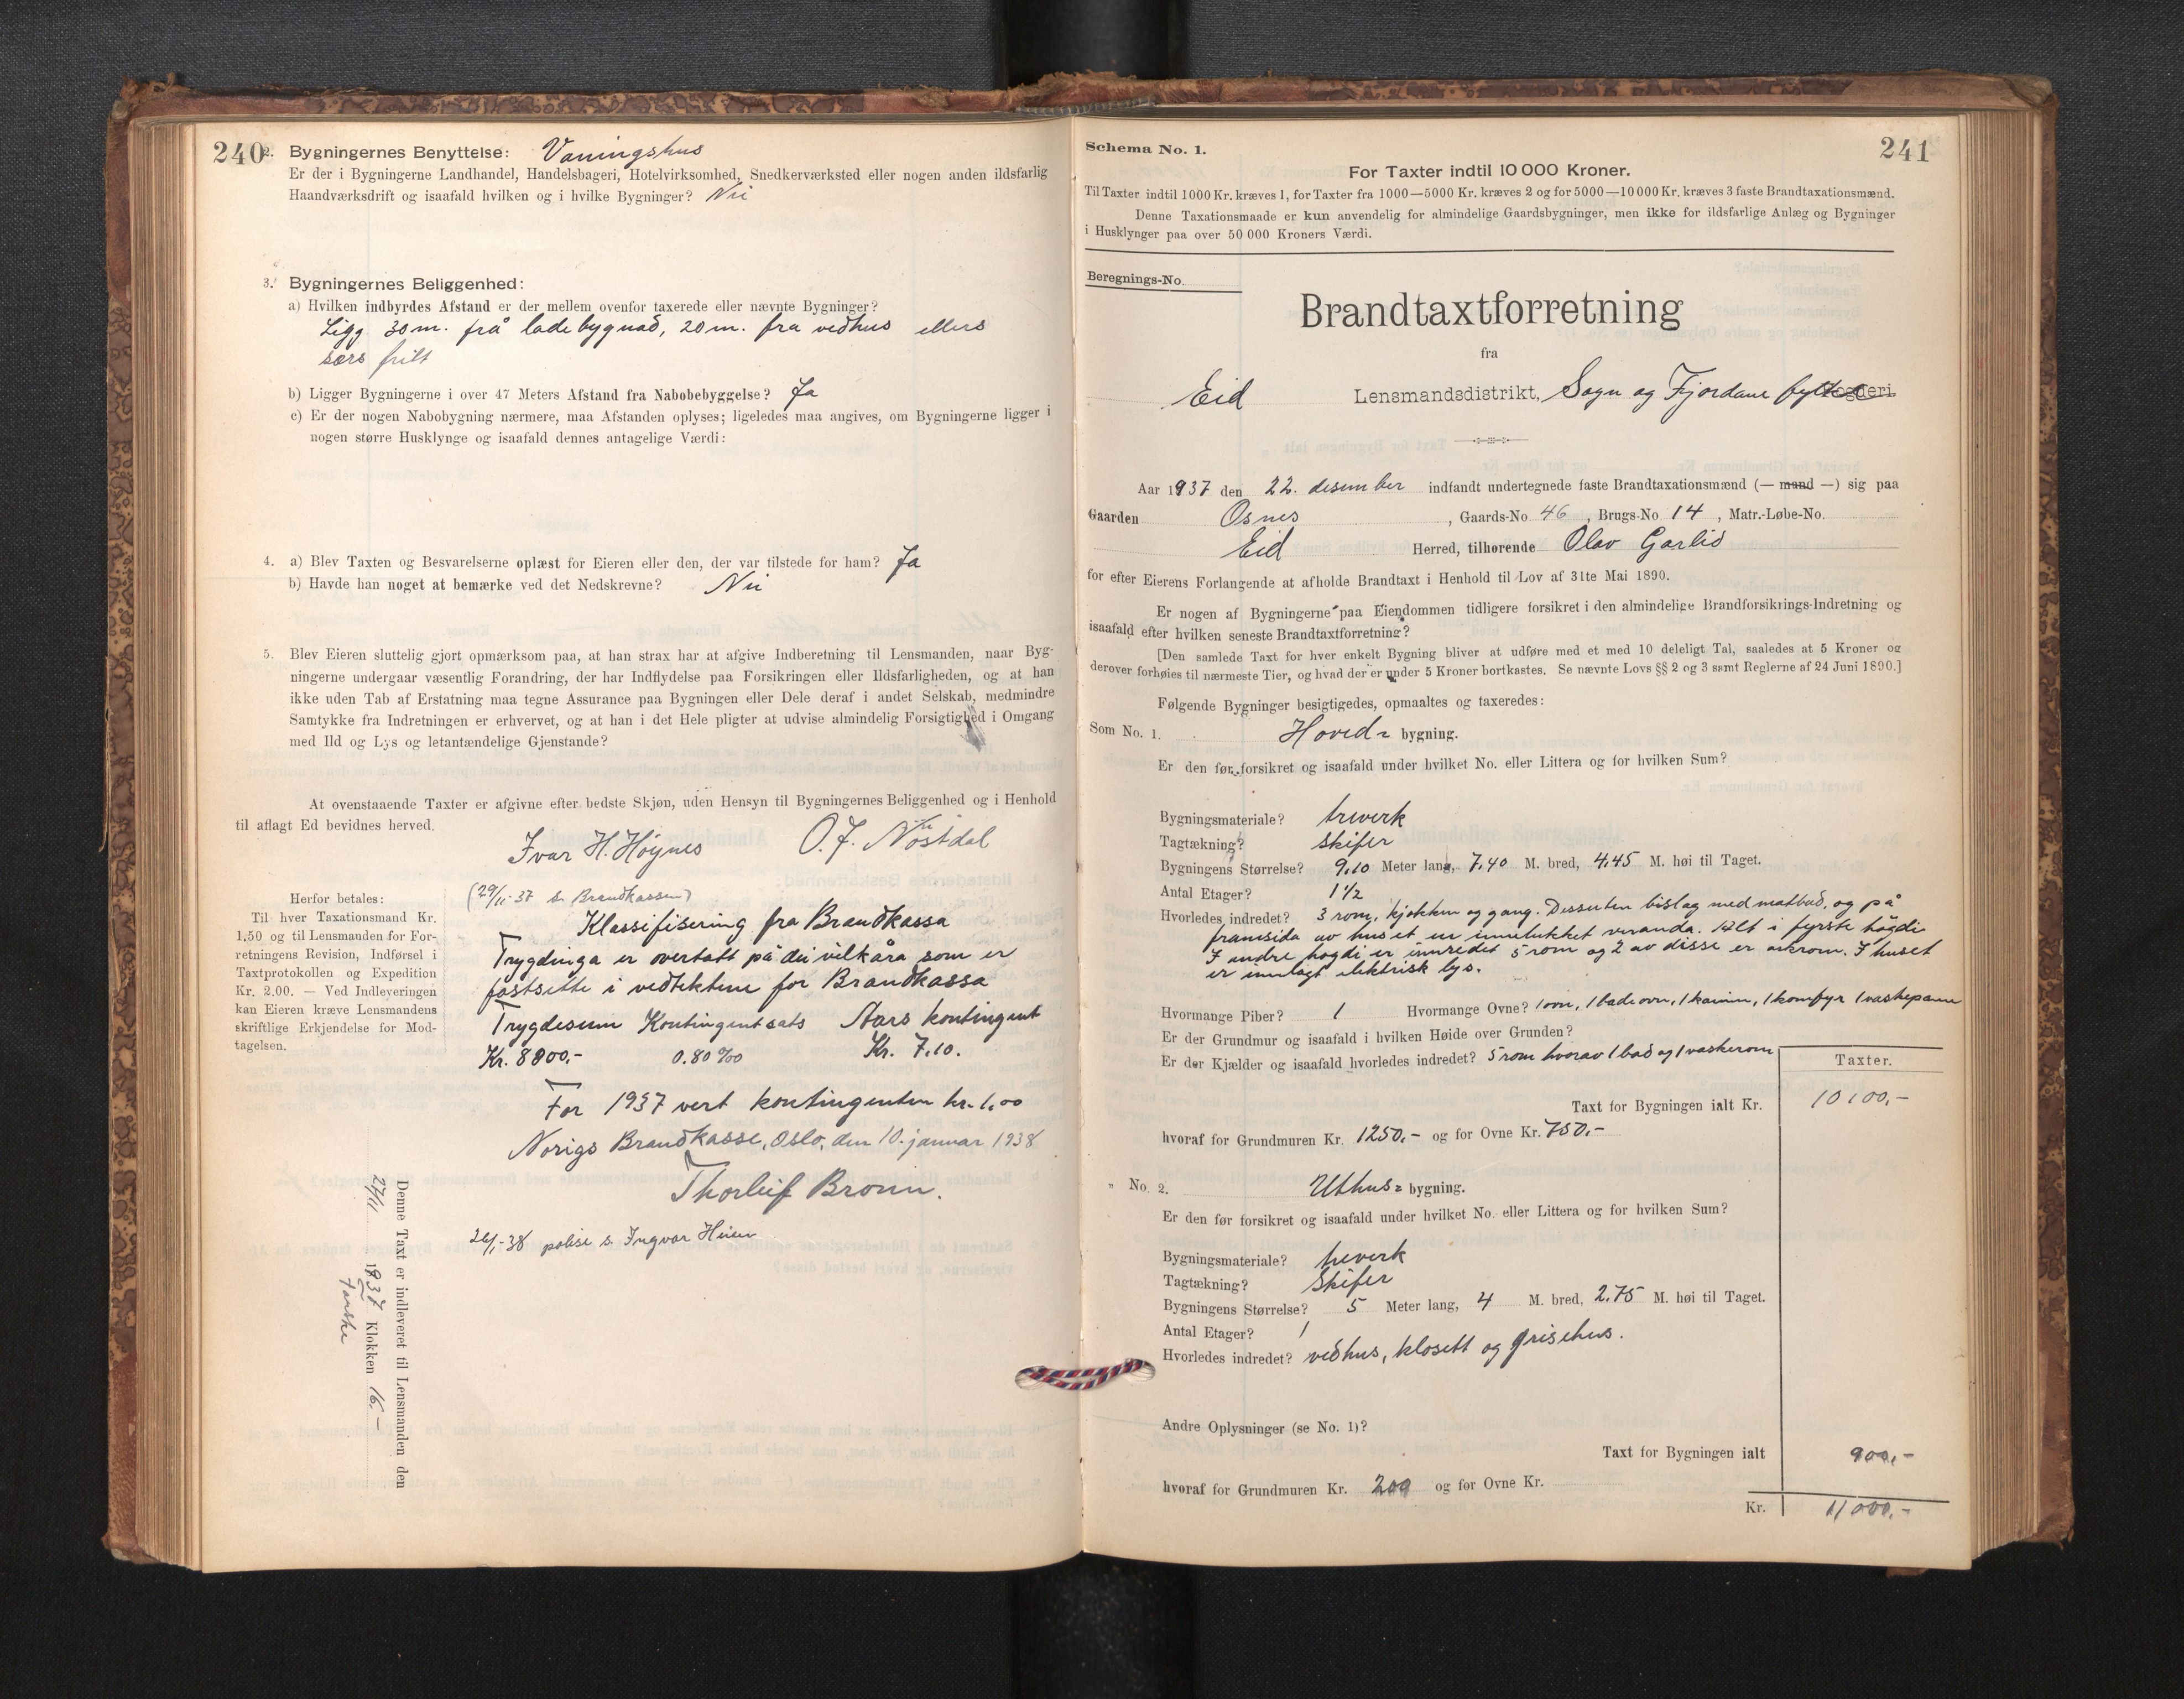 240
2. Bygningernes Benyttelse: Vaningshus
Er der i Bygningerne Landhandel, Handelsbageri, Hotelvirksomhed, Snedkerværksted eller nogen anden ildsfarlig
Haandværksdrift og isaafald hvilken og i hvilke Bygninger? Nei
3. Bygningernes Beliggenhed:
a) Hvilken indbyrdes Afstand er der mellem ovenfor taxerede eller nævnte Bygninger?
Ligg 30 m. frå ladebygnad, 20 m. fra vedhus ellers
særs fritt
b) Ligger Bygningerne i over 47 Meters Afstand fra Nabobebyggelse? Ja
c) Er der nogen Nabobygning nærmere, maa Afstanden oplyses; ligeledes maa angives, om Bygningerne ligger i
nogen større Husklynge og isaafald dennes antagelige Værdi:
4. a) Blev Taxten og Besvarelserne oplæst for Eieren eller den, der var tilstede for ham? Ja
b) Havde han noget at bemærke ved det Nedskrevne? Nei
5. Blev Eieren sluttelig gjort opmærksom paa, at han strax har at afgive Indberetning til Lensmanden, naar Byg-
ningerne undergaar væsentlig Forandring, der har Indflydelse paa Forsikringen eller Ildsfarligheden, og at han
ikke uden Tab af Erstatning maa tegne Assurance paa Bygningen eller Dele deraf i andet Selskab, medmindre
Samtykke fra Indretningen er erhvervet, og at han i det Hele pligter at udvise almindelig Forsigtighed i Omgang
med Ild og Lys og letantændelige Gjenstande?
At ovenstaaende Taxter er afgivne efter bedste Skjøn, uden Hensyn til Bygningernes Beliggenhed og i Henhold
til aflagt Ed bevidnes herved.
Ivar H. Høynes O. J. Nøstdal
(29/11-37 s. Brandkassen)
Herfor betales:
Til hver Taxationsmand Kr.
1,50 og til Lensmanden for For-
retningens Revision, Indførsel i
Taxtprotokollen og Expedition
Kr. 2.00. — Ved Indleveringen
kan Eieren kræve Lensmandens
skriftlige Erkjendelse for Mod-
tagelsen.
Klassifisering fra Brandkassa
Trygdinga er overtatt på dei vilkåra som er
fastsette i vedtektene for Brandkassa
Trygdesum Kontingentsats Aars kontingent
Kr. 8800,- 0.80 ‰ Kr. 7.10.
For 1937 vert kontingenten kr. 1,00
Norigs Brandkasse, Oslo, den 10. januar 1938
Thorleif Bronn.
26/1-38 polise s. Ingvar Heien
Denne Taxt er indleveret til Lensmanden den
27/11 1937 Klokken 16.-
241
Schema No. 1.
For Taxter indtil 10 000 Kroner.
Til Taxter indtil 1000 Kr. kræves 1, for Taxter fra 1000—5000 Kr. kræves 2 og for 5000—10 000 Kr. kræves 3 faste Brandtaxationsmænd.
Denne Taxationsmaade er kun anvendelig for almindelige Gaardsbygninger, men ikke for ildsfarlige Anlæg og Bygninger
i Husklynger paa over 50 000 Kroners Værdi.
Beregnings-No.
Brandtaxtforretning
fra
Eid Lensmandsdistrikt, Sogn og Fjordane fylke Fogderi.
Aar 1937 den 22. desember indfandt undertegnede faste Brandtaxationsmænd (— mand —) sig paa
Gaarden Osnes, Gaards-No 46, Brugs-No 14, Matr.-Løbe-No.
Eid Herred, tilhørende Olav Garlid
for efter Eierens Forlangende at afholde Brandtaxt i Henhold til Lov af 31te Mai 1890.
Er nogen af Bygningerne paa Eiendommen tidligere forsikret i den almindelige Brandforsikrings-Indretning og
isaafald efter hvilken seneste Brandtaxtforretning?
[Den samlede Taxt for hver enkelt Bygning bliver at udføre med et med 10 deleligt Tal, saaledes at 5 Kroner og
derover forhøies til nærmeste Tier, og hvad der er under 5 Kroner bortkastes. Se nævnte Lovs §§ 2 og 3 samt Reglerne af 24 Juni 1890.]
Følgende Bygninger besigtigedes, opmaaltes og taxeredes:
Som No. 1. Hoved- bygning.
Er den før forsikret og isaafald under hvilket No. eller Littera og for hvilken Sum?
Bygningsmateriale? treverk
Tagtækning? skifer
Bygningens Størrelse? 9,10 Meter lang, 7,40 M. bred, 4,45 M. høi til Taget.
Antal Etager? 1 1/2
Hvorledes indredet? 3 rom, kjøkken og gang. Dessuten bislag med matbud, og på
framsida av huset en innelukket veranda. Alt i fyrste høgdi
I andre høgdi er innredet 5 rom og 2 av disse er askrom. I huset
er innlagt elektrisk lys.
Hvormange Piber? 1 Hvormange Ovne? 1 ovn, 1 badeovn, 1 kamin, 1 komfyr 1 vaskepanne
Er der Grundmur og isaafald i hvilken Høide over Grunden?
Er der Kjælder og isaafald hvorledes indredet? 5 rom hvorav 1 bad og 1 vaskerom
Taxter.
Taxt for Bygningen ialt Kr. 10100,-
hvoraf for Grundmuren Kr. 1250,- og for Ovne Kr. 750,-
" No. 2. Uthus- bygning.
Er den før forsikret og isaafald under hvilket No. eller Littera og for hvilken Sum?
Bygningsmateriale? treverk
Tagtækning? Skifer
Bygningens Størrelse? 5 Meter lang, 4 M. bred, 2.75 M. høi til Taget.
Antal Etager? 1
Hvorledes indredet? vedhus, klosett og grisehus.
Andre Oplysninger (se No. 1)?
Taxt for Bygningen ialt 900,-
hvoraf for Grundmuren Kr. 200 og for Ovne Kr.
Kr. 11000,-